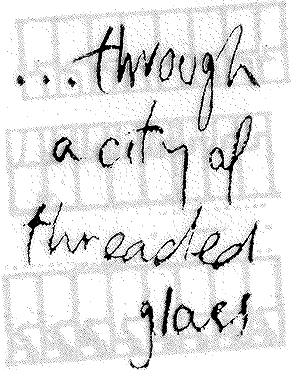 ...through
a city of
threaded
glass